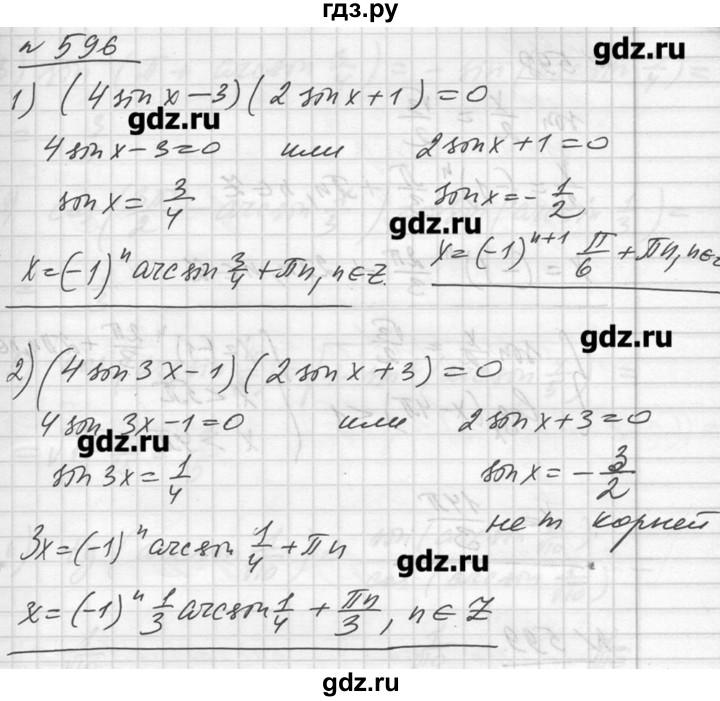 гдз.ру
gdz.ru
№ 596
1) (4 sin x − 3)(2 sin x + 1) = 0
gdz.ru
4 sin x − 3 = 0 или 2 sin x + 1 = 0
sin x = 3/4 sin x = − 1/2
gdz.ru
x = (−1)^n arcsin 3/4 + πn, n ∈ Z. x = (−1)^{n+1} π/6 + πn, n ∈ Z
gdz.ru
2) (4 sin 3x − 1)(2 sin x + 3) = 0
4 sin 3x − 1 = 0 или 2 sin x + 3 = 0
gdz.ru
sin 3x = 1/4 sin x = − 3/2
нет корней
3x = (−1)^n arcsin 1/4 + πn
gdz.ru
x = (−1)^n 1/3 arcsin 1/4 + πn/3, n ∈ Z
gdz.ru